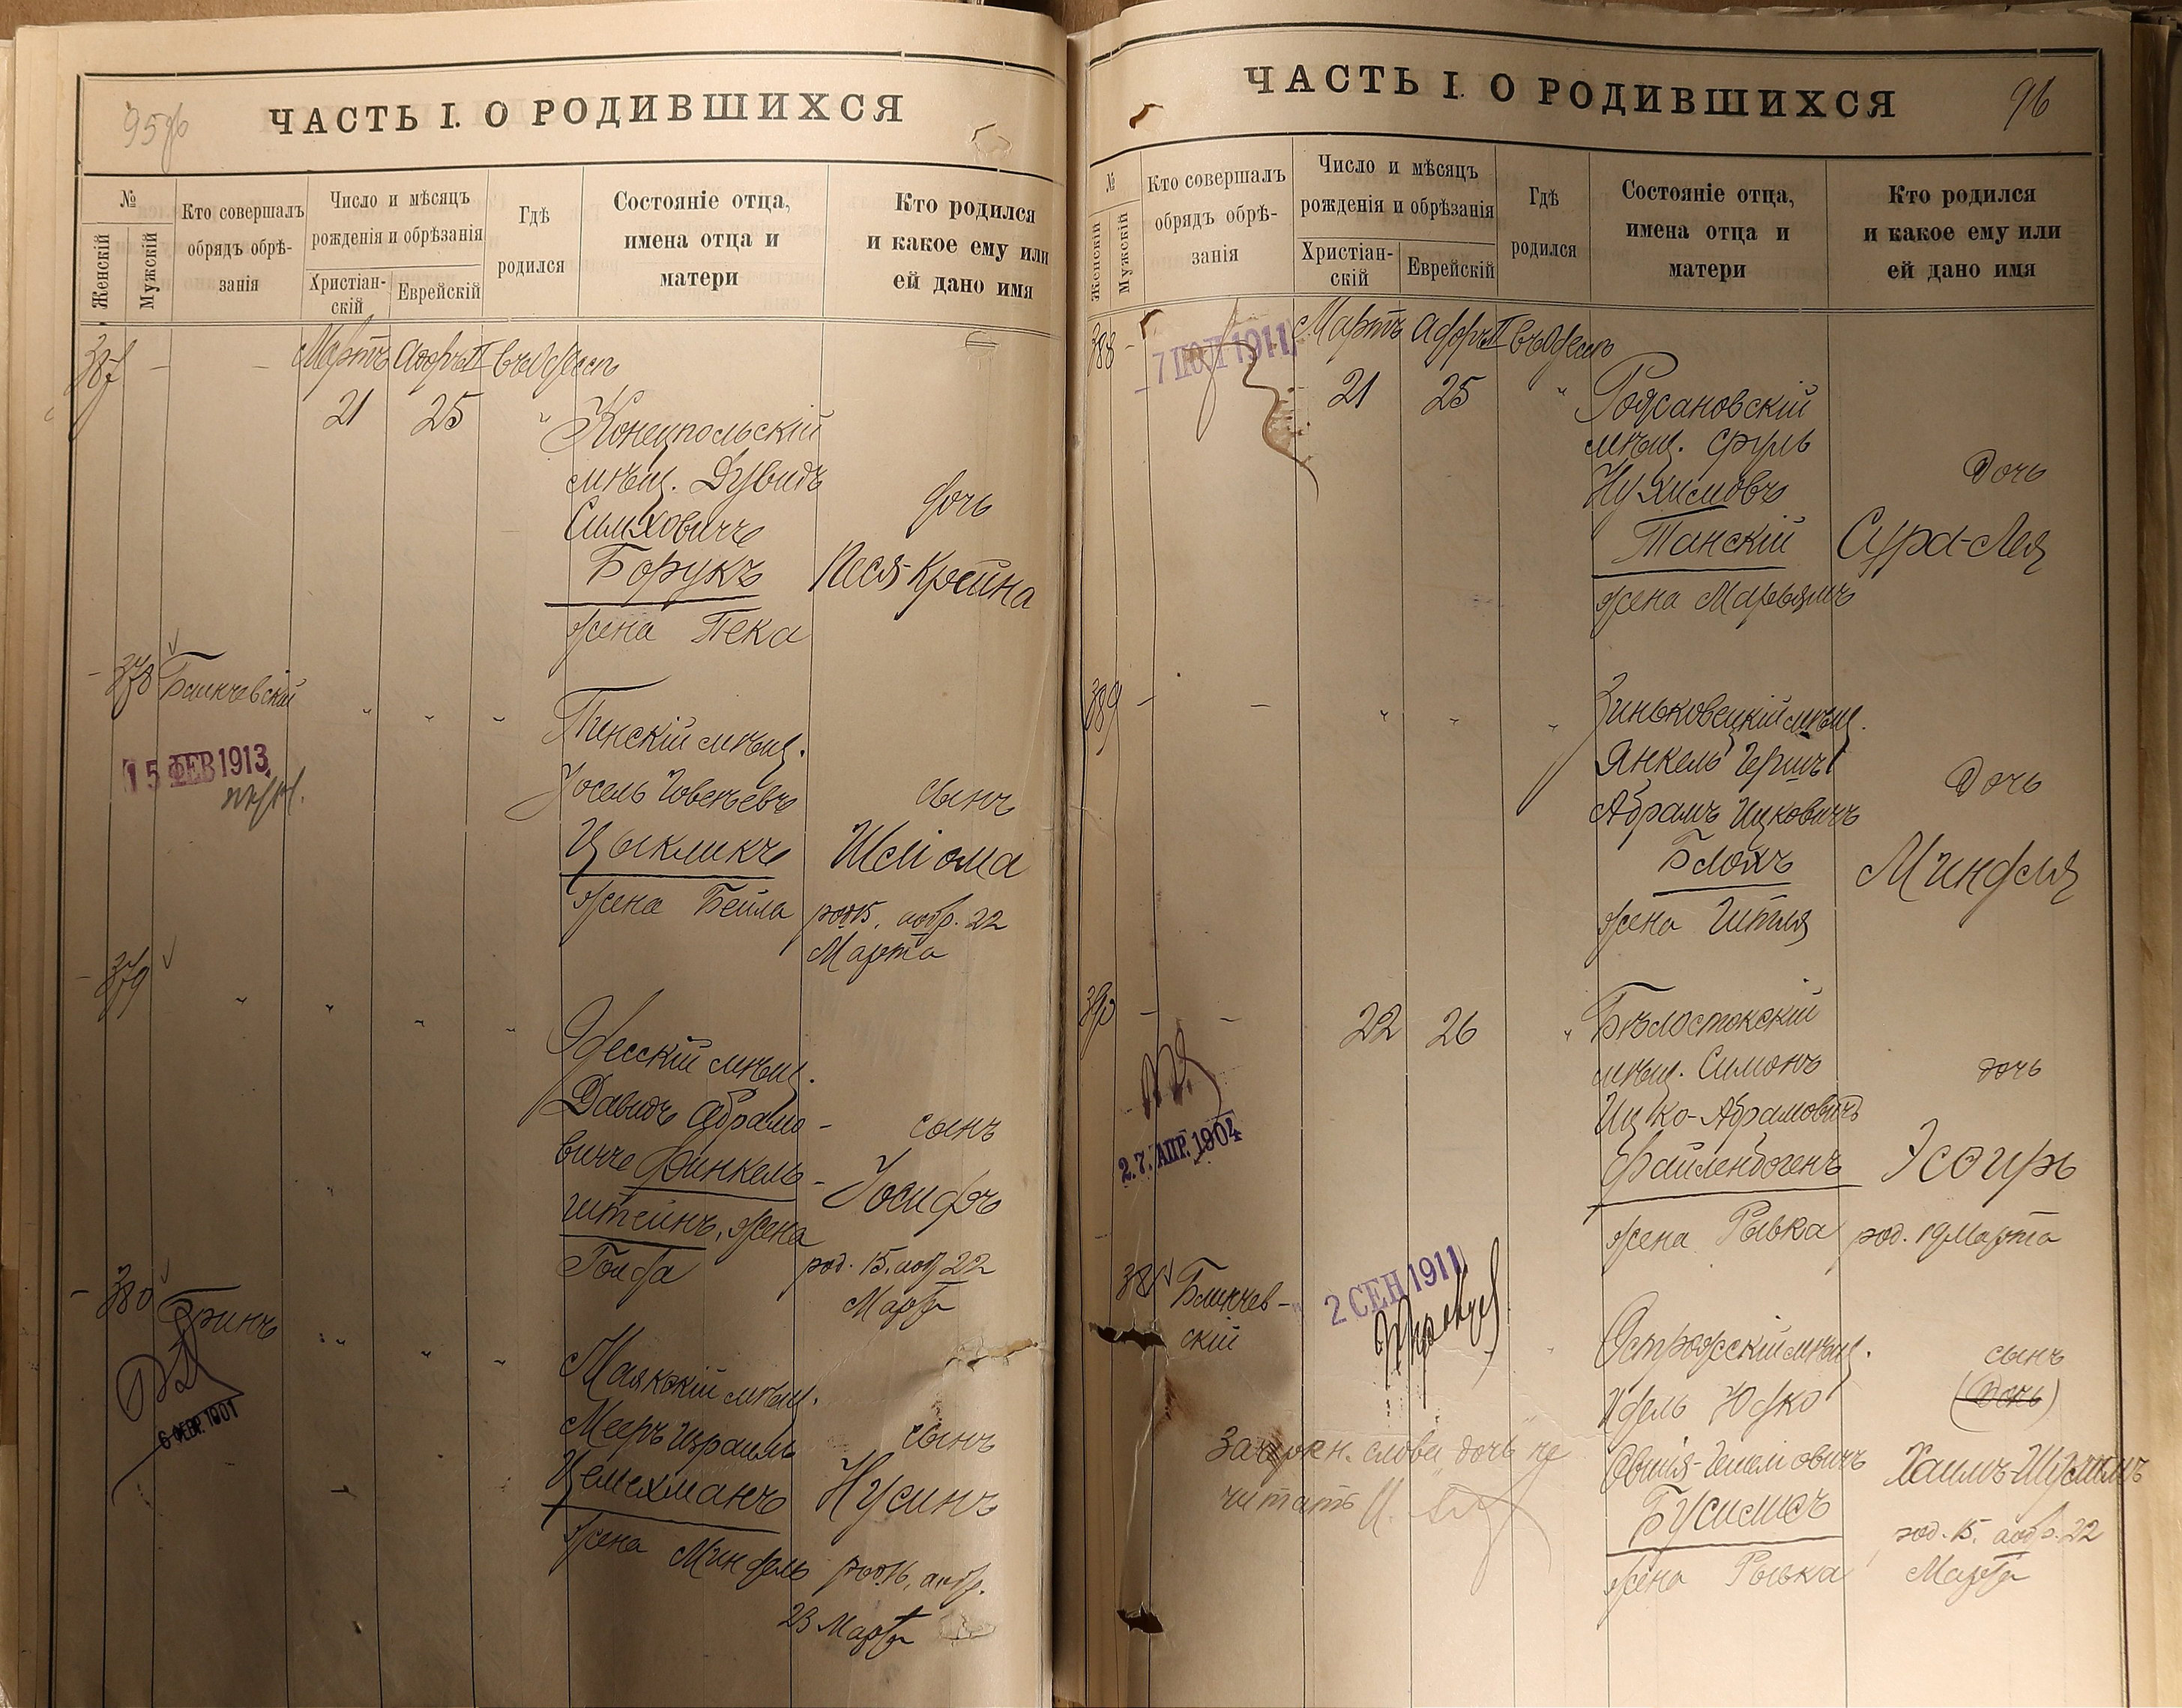 95об
ЧАСТЬ I. О РОДИВШИХСЯ
№
Женскій
Мужскій
Кто совершалъ
обрядъ обрѣ-
занія
Число и мѣсяцъ
рожденія и обрѣзанія
Христіан-
скій
Еврейскій
Гдѣ
родился
Состояніе отца,
имена отца и
матери
Кто родился
и какое ему или
ей дано имя
387 - - Мартъ въ Одессѣ
21 25 "
Конецпольскій
мѣщ. Дувидъ
Симховичъ
Борукъ
жена Пека
дочь
Песя-Крейна
378
15 ФЕВ 1913
Пинскій мѣщ.
Іосель
Цыкликъ
жена Бейла
сынъ
Шліома
род. 15, аобр. 22
Марта
379
Одесскій мѣщ.
Давидъ Абрамо-
вичъ Финкель-
штейнъ, жена
Гольда
сынъ
Іосифъ
род. 15, аобр 22
Марта
380 Гринъ
6 ФЕВР. 1901
Маякскій мѣщ.
Мееръ Израиль
Цемехманъ
жена Миндель
сынъ
Нусинъ
род. 16, аобр.
23 Марта
96
ЧАСТЬ I. О РОДИВШИХСЯ
№
Женскій
Мужскій
Кто совершалъ
обрядъ обрѣ-
занія
Число и мѣсяцъ
рожденія и обрѣзанія
Христіан-
скій
Еврейскій
Гдѣ
родился
Состояніе отца,
имена отца и
матери
Кто родился
и какое ему или
ей дано имя
388 - Мартъ въ Одессѣ
1911
21 25 "
мѣщ. Сруль
Нухимовъ
Танскій
жена Марьямъ
дочь
Сура-Лея
389 - -
Зиньковецкій мѣщ.
Янкель Гершъ
Абрамъ Ицковичъ
Блохъ
жена Гитля
Дочь
Миндля
390 - - 22 26 "
27. АПР. 1904
Бѣлостокскій
мѣщ. Симонъ
Ицко-Абрамовичъ
Файленбогенъ
жена Рывка
дочь
Эсѳирь
род. 19 Марта
381
2 СЕН 1911
Острожскій мѣщ.
Идель Юдко
Бусисъ
жена Рывка
сынъ
(Дочь)
Хаимъ-Шулимъ
род. 15, аобр. 22
Марта
Зачеркн. слова дочь не
читать